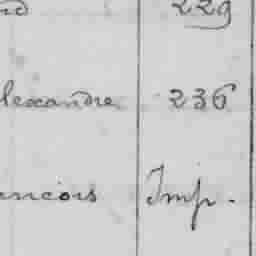 229
lexandre 236
ancois Imp.